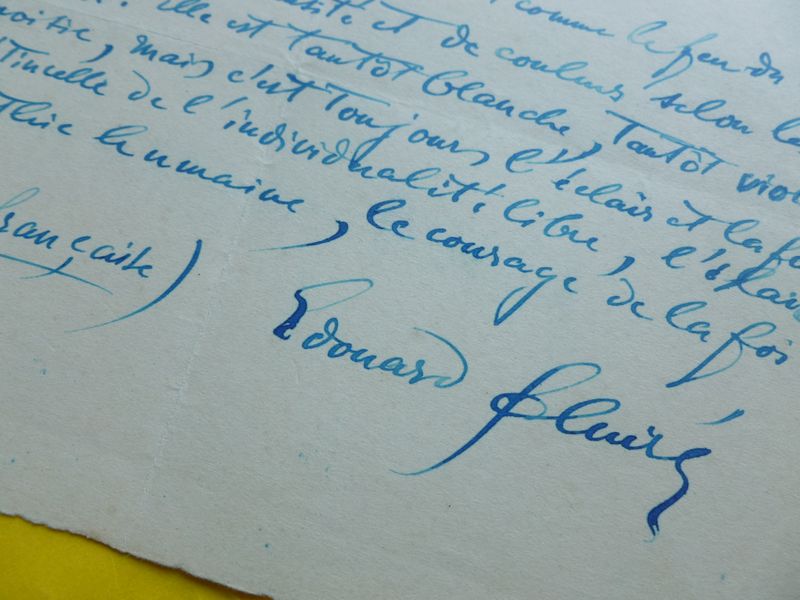 comme le feu du
et de couleur selon la
Elle est tantôt blanche, tantôt viol
mais c'est toujours l'éclair et la fo
tincelle de l'individualité libre, l'éclair
thie humaine, le courage de la foi
française)
Edouard Schuré